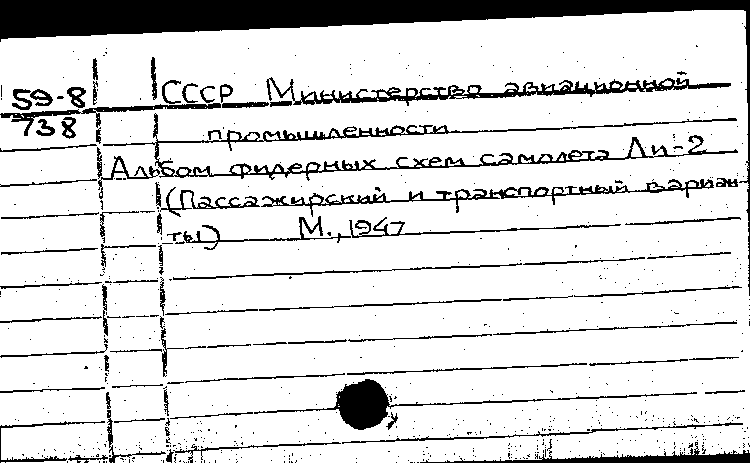 59-8
738
СССР Министерство авиационной
промышленности
Альбом фидерных схем самолета Ли-2
(Пассажирский и транспортный вариан-
ты) М., 1947